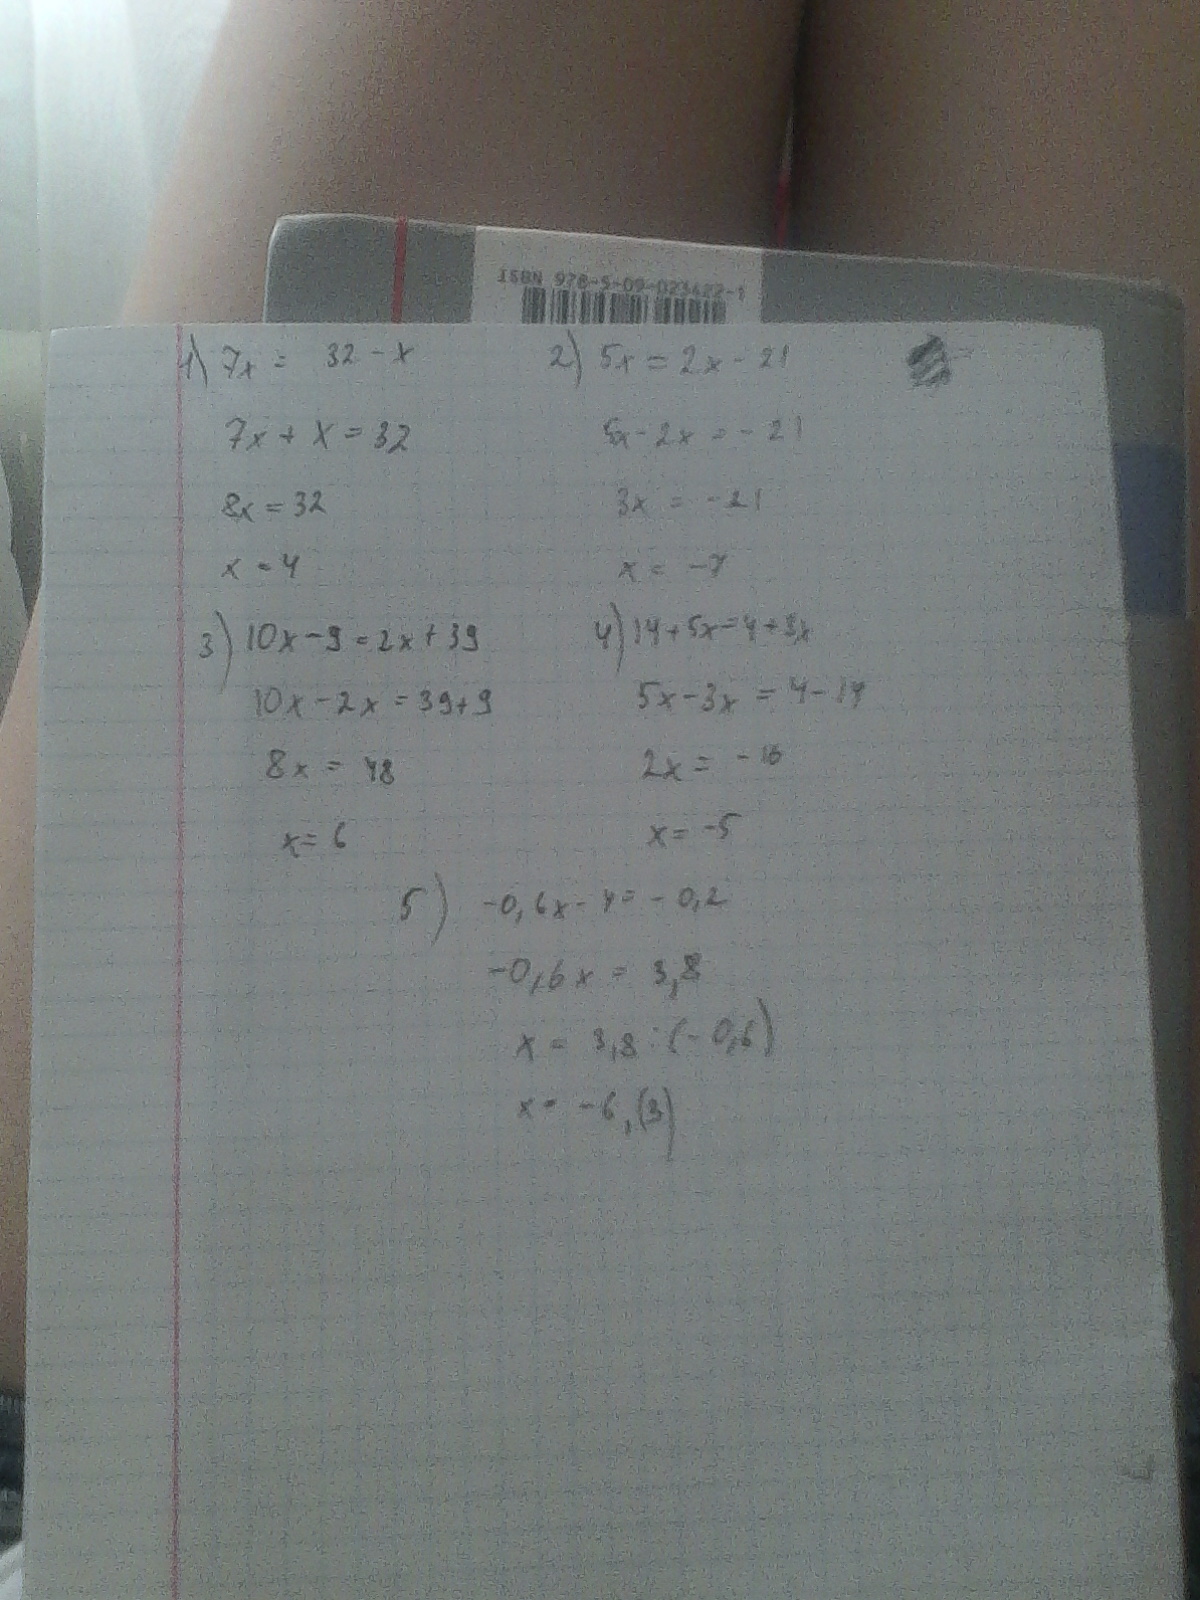 ISBN 978-5-09-023422-1
1) 7x = 32 - x
7x + x = 32
8x = 32
x = 4
2) 5x = 2x - 21
5x - 2x = - 21
3x = - 21
x = - 7
3) 10x - 9 = 2x + 39
10x - 2x = 39 + 9
8x = 48
x = 6
4) 14 + 5x = 4 + 3x
5x - 3x = 4 - 14
2x = - 10
x = - 5
5) -0,6x - 4 = - 0,2
-0,6x = 3,8
x = 3,8 : (- 0,6)
x = - 6,(3)